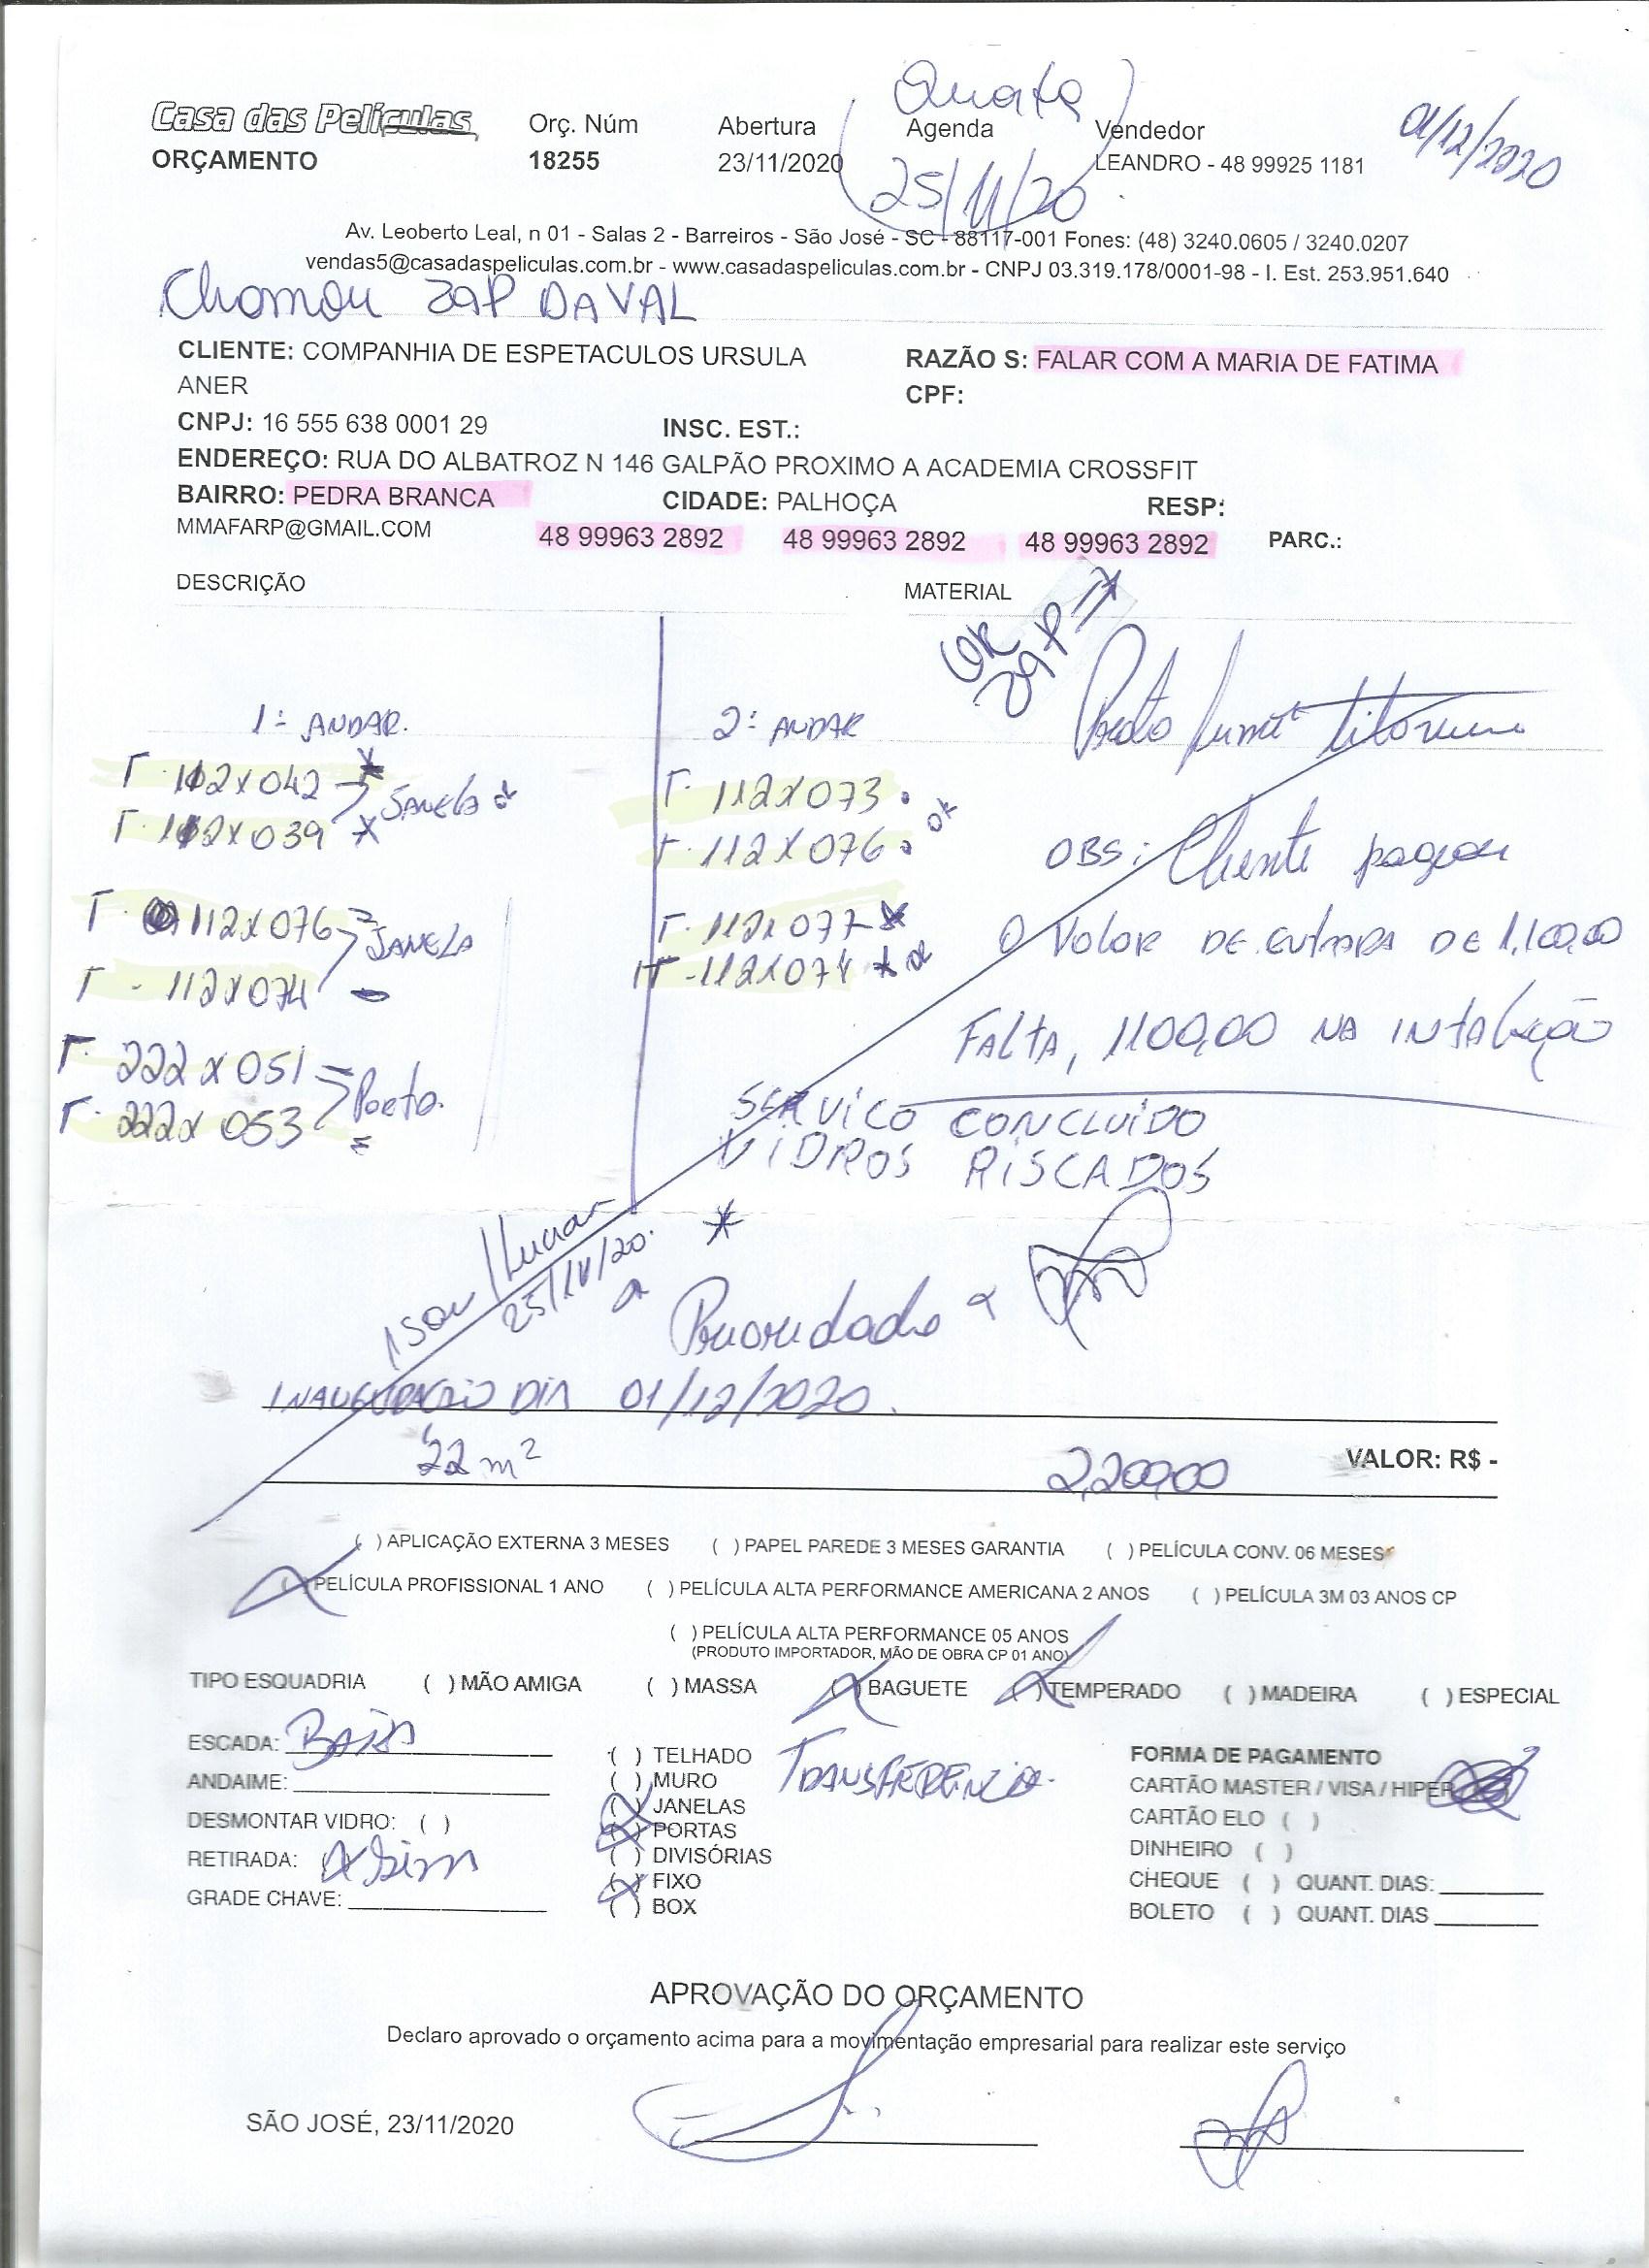 Quarta
Casa das Películas Orç. Núm Abertura Agenda Vendedor 01/12/2020
ORÇAMENTO 18255 23/11/2020 25/11/20 LEANDRO - 48 99925 1181
Av. Leoberto Leal, n 01 - Salas 2 - Barreiros - São José - SC - 88117-001 Fones: (48) 3240.0605 / 3240.0207
vendas5@casadaspeliculas.com.br - www.casadaspeliculas.com.br - CNPJ 03.319.178/0001-98 - I. Est. 253.951.640
Chamou ZAP DAVAL
CLIENTE: COMPANHIA DE ESPETACULOS URSULA RAZÃO S: FALAR COM A MARIA DE FATIMA
ANER CPF:
CNPJ: 16 555 638 0001 29 INSC. EST.:
ENDEREÇO: RUA DO ALBATROZ N 146 GALPÃO PROXIMO A ACADEMIA CROSSFIT
BAIRRO: PEDRA BRANCA CIDADE: PALHOÇA RESP:
MMAFARP@GMAIL.COM 48 99963 2892 48 99963 2892 48 99963 2892 PARC.:
DESCRIÇÃO MATERIAL
OK
ZAP
1º ANDAR. 2º ANDAR Preto
112x042 JANELA 112x073 OK
112x039 112x076 OBS: Cliente pagou
112x076 JANELA 112x077 O Valor DE ENTRADA DE 1,100,00
112x074 112x074
222x051 Porta. FALTA, 1100,00 NA INSTALAÇÃO
222x053 SERVIÇO CONCLUIDO
VIDROS RISCADOS
Luciano
25/11/20.
Prioridade
INAUGURAÇÃO DIA 01/12/2020.
22 m² 2,200,00 VALOR: R$ -
( ) APLICAÇÃO EXTERNA 3 MESES ( ) PAPEL PAREDE 3 MESES GARANTIA ( ) PELÍCULA CONV. 06 MESES
( ) PELÍCULA PROFISSIONAL 1 ANO ( ) PELÍCULA ALTA PERFORMANCE AMERICANA 2 ANOS ( ) PELÍCULA 3M 03 ANOS CP
( ) PELÍCULA ALTA PERFORMANCE 05 ANOS
(PRODUTO IMPORTADOR, MÃO DE OBRA CP 01 ANO)
TIPO ESQUADRIA ( ) MÃO AMIGA ( ) MASSA ( ) BAGUETE ( ) TEMPERADO ( ) MADEIRA ( ) ESPECIAL
ESCADA: ( ) TELHADO TRANSFERENCIA. FORMA DE PAGAMENTO
ANDAIME: ( ) MURO CARTÃO MASTER / VISA / HIPER
DESMONTAR VIDRO: ( ) ( ) JANELAS CARTÃO ELO ( )
( ) PORTAS
RETIRADA: ( ) Sim ( ) DIVISÓRIAS DINHEIRO ( )
( ) FIXO CHEQUE ( ) QUANT. DIAS:
GRADE CHAVE: ( ) BOX BOLETO ( ) QUANT. DIAS
APROVAÇÃO DO ORÇAMENTO
Declaro aprovado o orçamento acima para a movimentação empresarial para realizar este serviço
SÃO JOSÉ, 23/11/2020